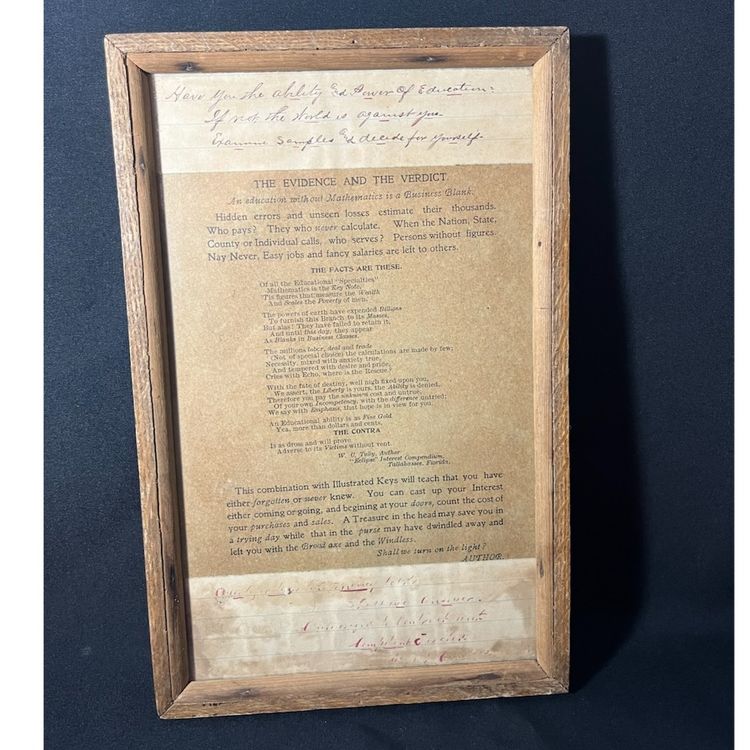 Have You the ability and Power Of Education:
If not the World is against you
Examine Samples and decide for yourself.
THE EVIDENCE AND THE VERDICT.
An education without Mathematics is a Business Blank.
Hidden errors and unseen losses estimate their thousands.
Who pays? They who never calculate. When the Nation, State,
County or Individual calls, who serves? Persons without figures.
Nay Never, Easy jobs and fancy salaries are left to others.
THE FACTS ARE THESE.
Of all the Educational "Specialties"
Mathematics is the Key Note,
'Tis figures that measure the Wealth
And Scales the Poverty of men.
The powers of earth have expended Billions
To furnish this Branch to its Masses,
But alas! They have failed to retain it,
And until this day, they appear
As Blanks in Business Classes.
The millions labor, deal and trade
(Not of special choice) the calculations are made by few;
Necessity, mixed with anxiety true,
And tempered with desire and pride,
Cries with Echo, where is the Rescue?
With the fate of destiny, well nigh fixed upon you,
We assert, the Liberty is yours, the Ability is denied,
Therefore you pay the unknown cost and untrue,
Of your own Incompetency, with the difference untried;
We say with Emphasis, that hope is in view for you.
An Educational ability is as Fine Gold
Yea, more than dollars and cents.
THE CONTRA
Is as dross and will prove
Adverse to its Victims without vent.
W. C. Tully, Author
"Eclipse" Interest Compendium,
Tallahassee, Florida.
This combination with Illustrated Keys will teach that you have
either forgotten or never knew. You can cast up your Interest
either coming or going, and begining at your doors, count the cost of
your purchases and sales. A Treasure in the head may save you in
a trying day while that in the purse may have dwindled away and
left you with the Broad axe and the Windless.
Shall we turn on the light?
AUTHOR.